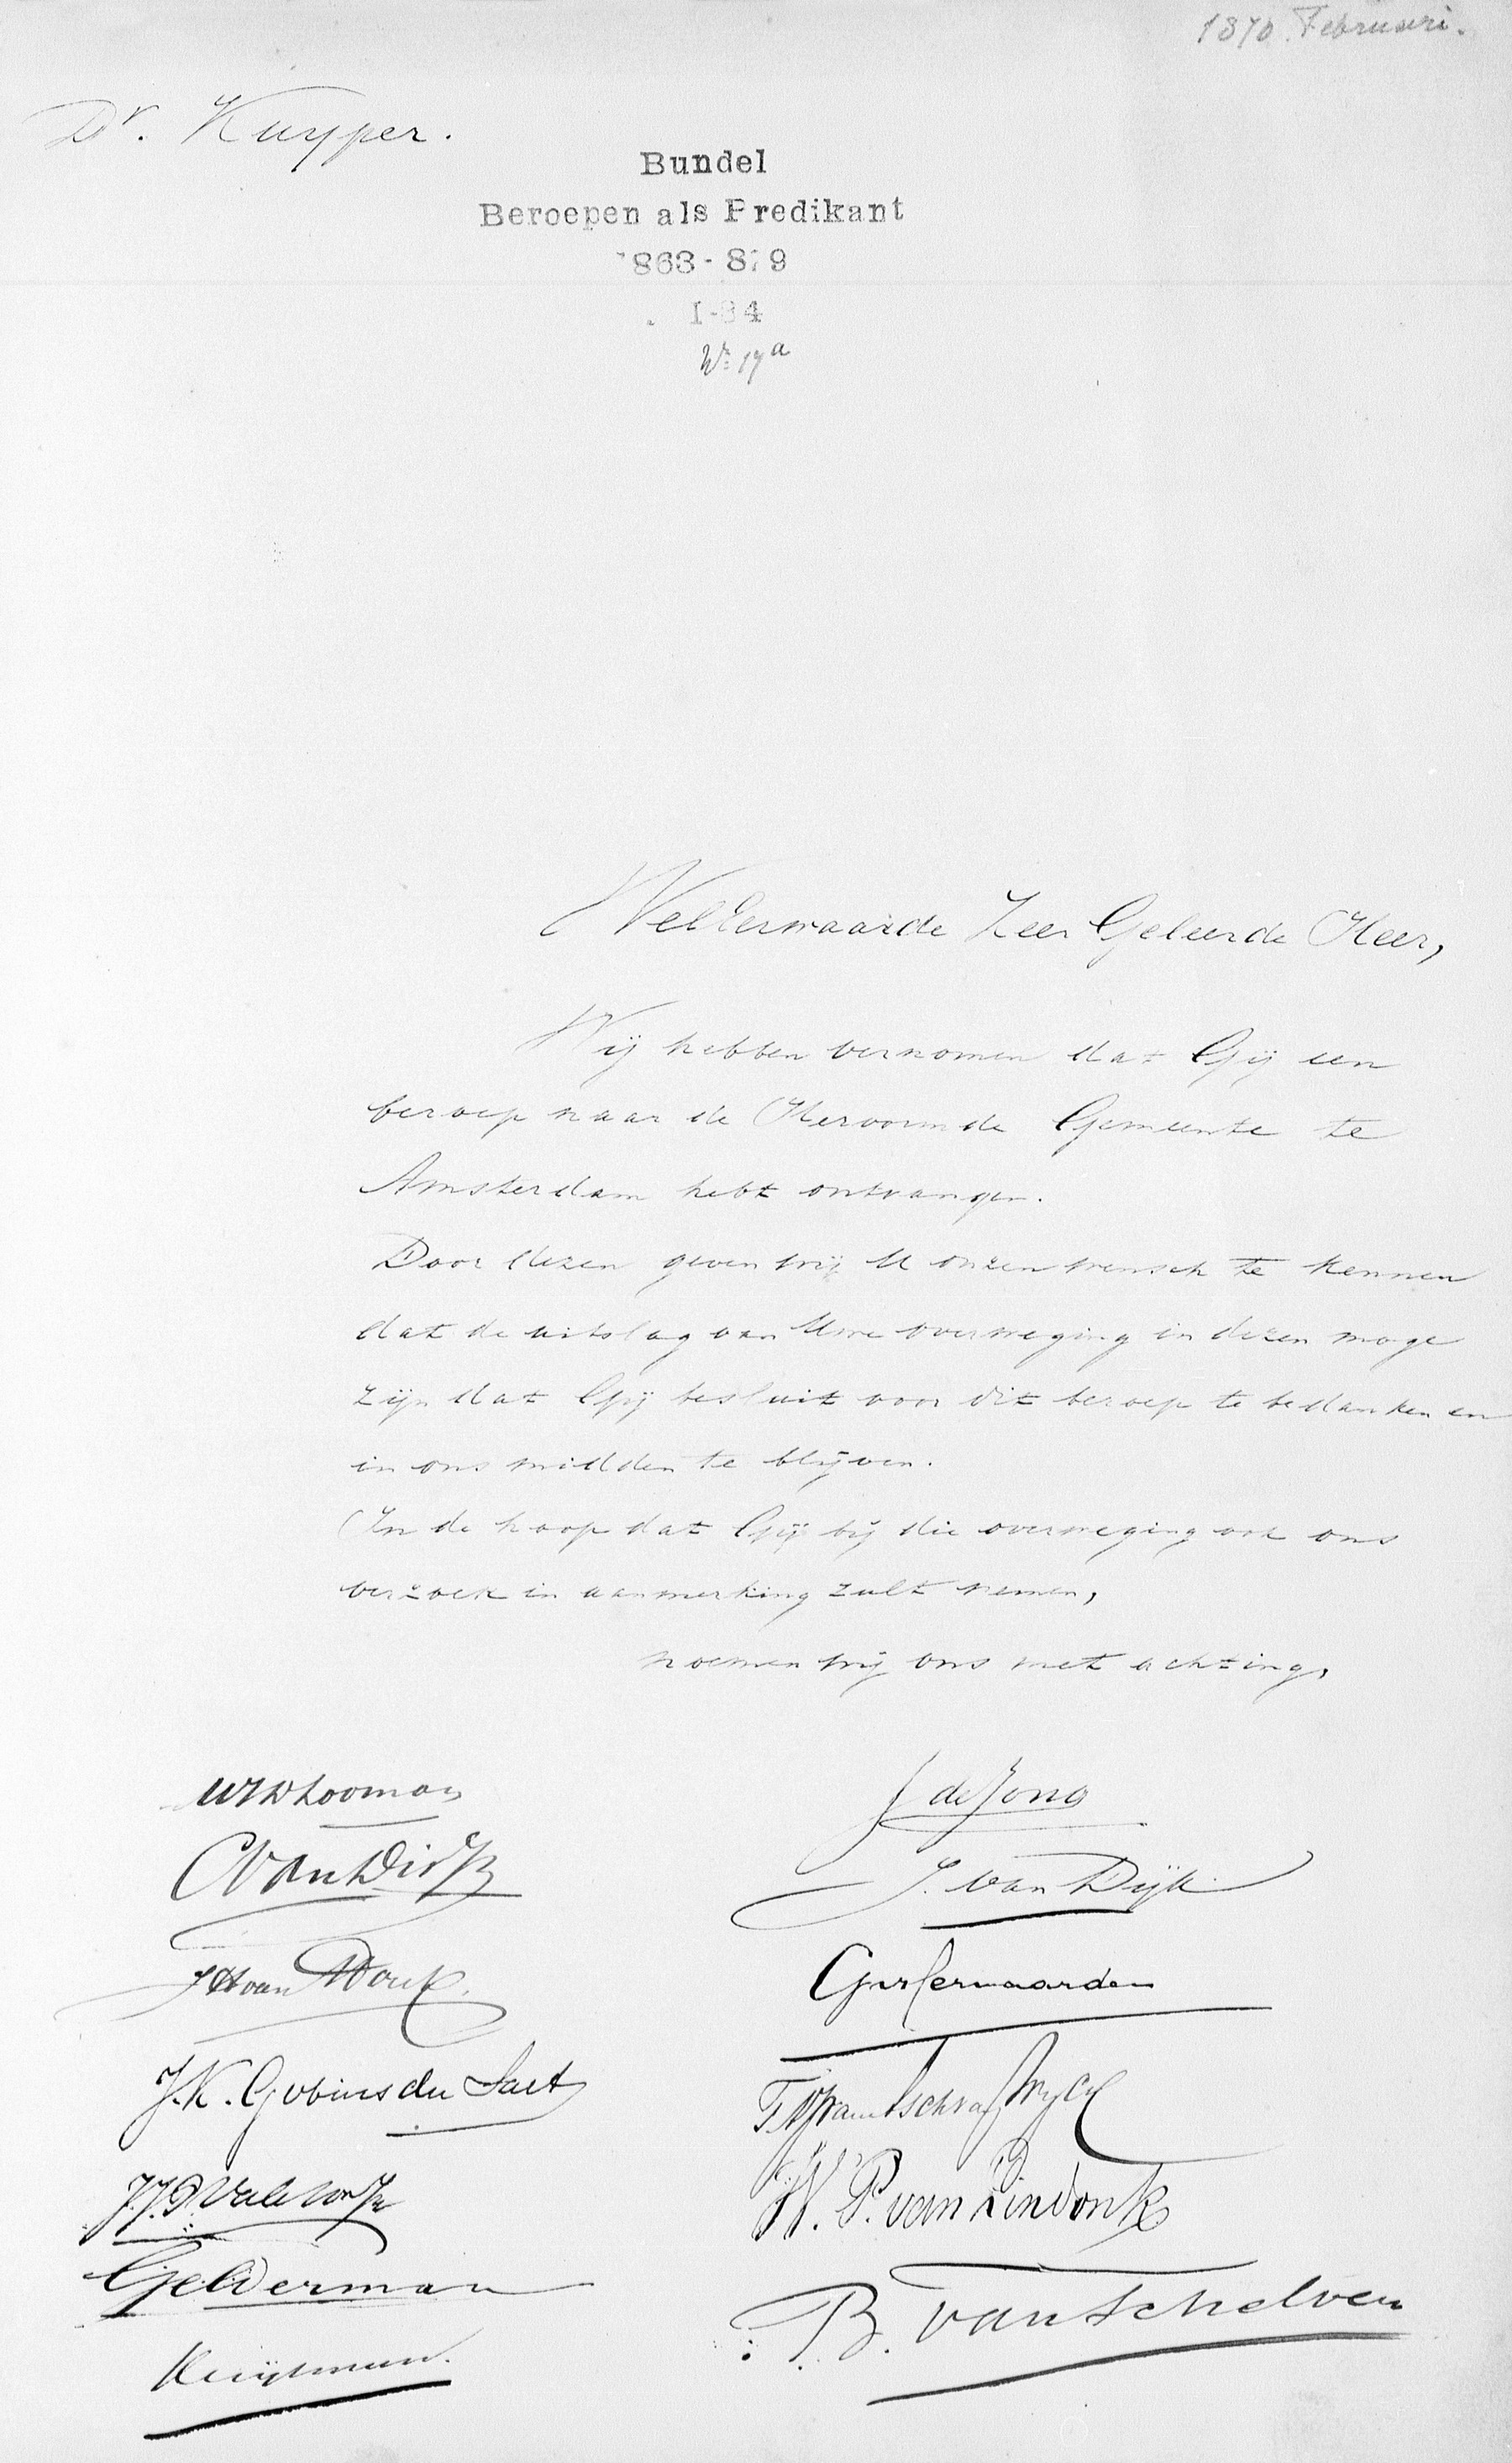 1870 Februari.
Dr. Kuyper.
Bundel
Beroepen als Predikant
1863-1879
I-34
No 17a
WelEerwaarde Zeer Geleerde Heer,
Wij hebben vernomen dat Gij een
beroep naar de Hervormde Gemeente te
Amsterdam hebt ontvangen.
Door dezen geven wij U onzen wensch te kennen
dat de uitslag van Uwe overweging in dezen moge
zijn dat Gij besluit voor dit beroep te bedanken en
in ons midden te blijven.
In de hoop dat Gij bij die overweging ook ons
verzoek in aanmerking zult nemen,
noemen wij ons met achting,
Looman
J de Jong
C van Dijk
J. van Dijk
J H van
J.K. Gobius du Sart
W. P. van Lindonk
Gelderman
B. van Schelven